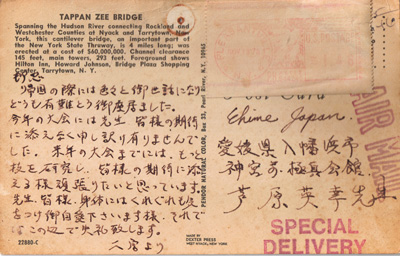 TAPPAN ZEE BRIDGE
Spanning the Hudson River connecting Rockland and
Westchester Counties at Nyack and Tarrytown, New
York, this cantilever bridge, an important part of
the New York State Thruway, is 4 miles long; was
erected at a cost of $60,000,000. Channel clearance
145 feet, main towers, 293 feet. Foreground shows
Hilton Inn, Howard Johnson, Bridge Plaza Shopping
Tarrytown, N. Y.
帰国の際には色々と御世話になり
どうも有難とう御座居ました。
今年の大会には先生、皆様の期待に
添えなく申し訳り有りませんで
した。来年の大会までには、もっと
技を研究し、皆様の期待に添
える様頑張りたいと思っています。
先生、皆様、身体にはくれぐれも
御自愛下さいます様、それで
はこの辺で失礼致します。
二宮より
PENMOR NATURAL COLOR, Box 33, Pearl River, N.Y. 10962
MADE BY
DEXTER PRESS
WEST NYACK, NEW YORK
22880-C
Ehime Japan.
愛媛県八幡浜市
神宮前極真会館
芦原英幸先生
AIR MAIL
SPECIAL
DELIVERY